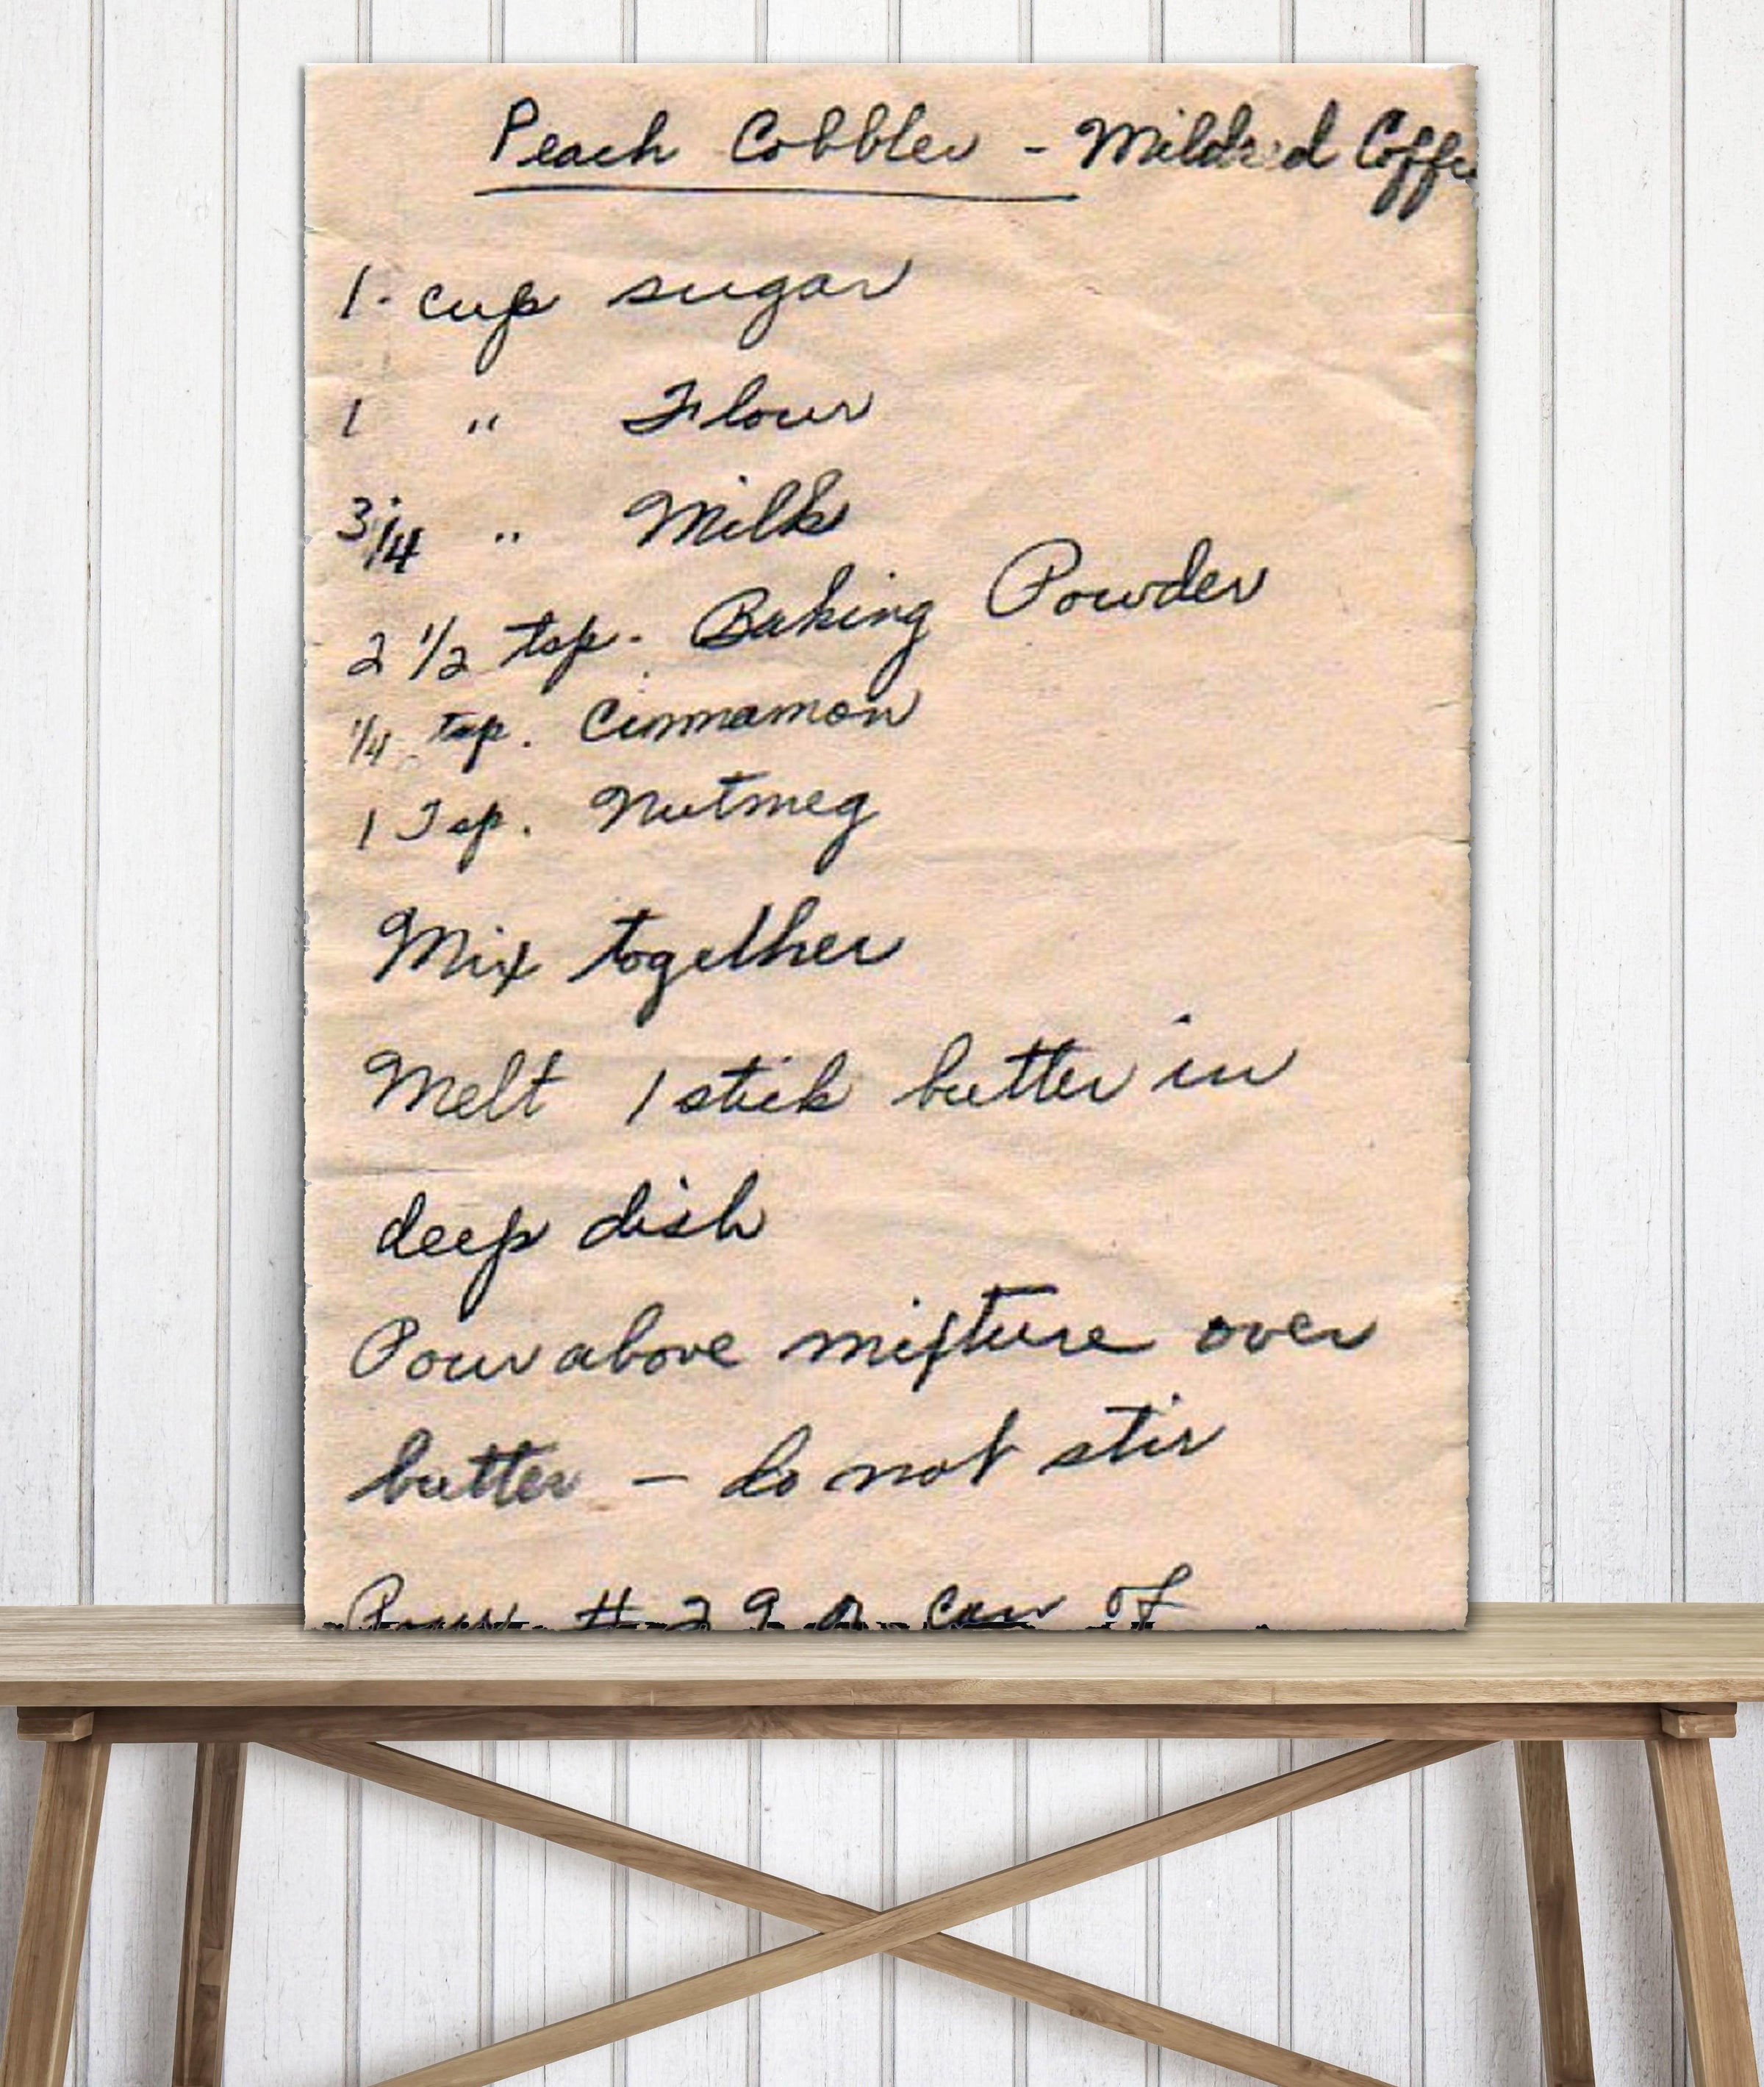 Peach Cobbler - Mildred
1 - cup sugar
1 " Flour
3/4 " Milk
2 1/2 tsp. Baking Powder
1/4 tsp. Cinnamon
1 Tsp. Nutmeg
Mix together
Melt 1 stick butter in
deep dish
Pour above mixture over
butter — do not stir
Pour # 2 can of